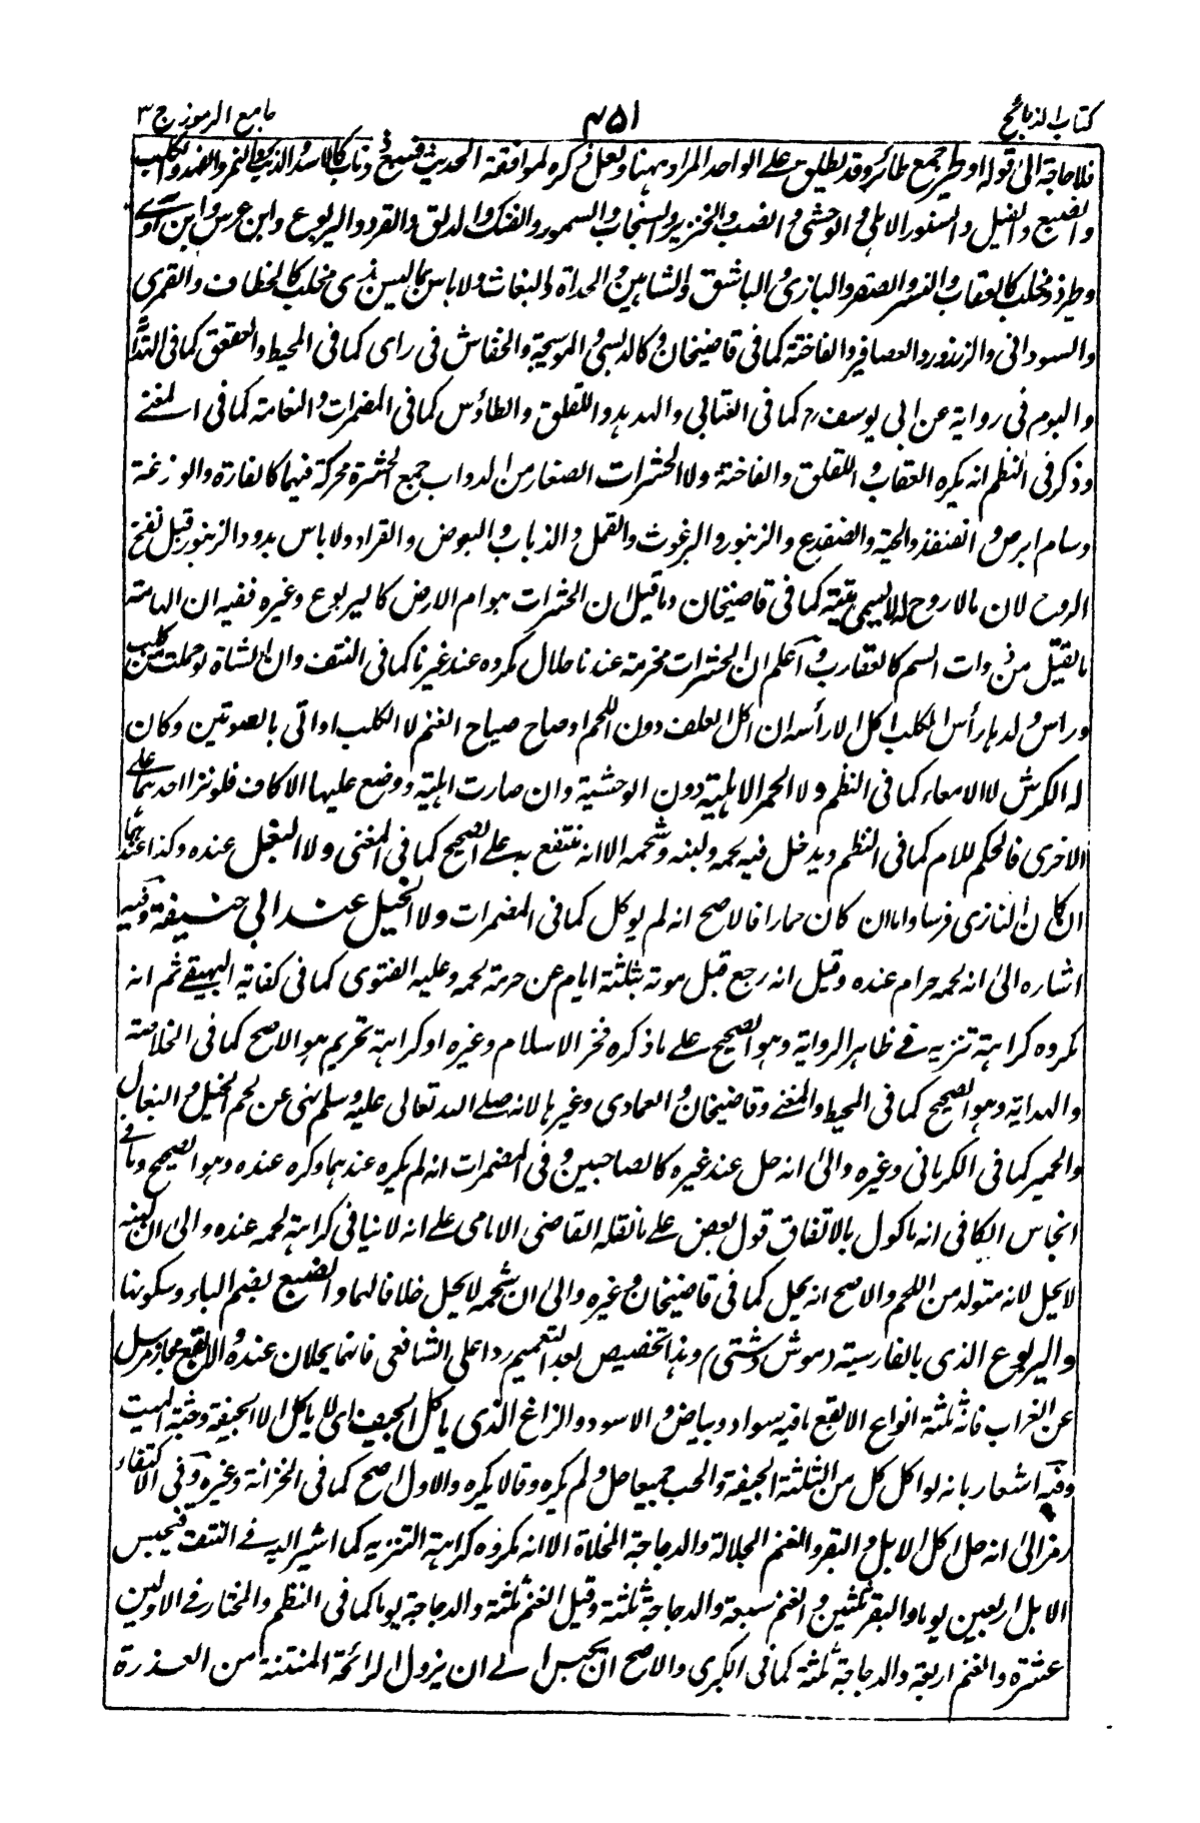 كتاب الذبائح ٣٥١ جامع الرموز ج ٣
فلا حاجة الى قوله او طير جمع طائر وقد يطلق على الواحد المراد ههنا ولعل ذكره لموافقة الحديث فسبع ذو ناب كالاسد والذئب والنمر والفهد والكلب
والضبع والفيل والسنور الاهلى والوحشى والضب والخنزير والسنجاب والسمور والفنك والدلق والقرد واليربوع وابن عرس وابن آوى
وطير ذو مخلب كالعقاب والنسر والصقر والبازى والباشق والشاهين والحداة والبغاث ولا باس بما ليس بذى مخلب كالخطاف والقمرى
والسودانى والزرزور والعصافير والفاختة كما فى قاضيخان وكالدبسى والموسيجة والخفاش فى راى كما فى المحيط والعقعق كما فى
والبوم فى رواية عن ابى يوسف رح كما فى العتابى والهدهد واللقلق والطاؤس كما فى المضمرات والنعامة كما فى المغنى
وذكر فى النظم انه يكره العقاب واللقلق والفاختة ولا الحشرات الصغار من الدواب جمع الحشرة محركة فيهما كالفارة والوزغة
وسام ابرص والقنفذ والحية والضفدع والزنبور والبرغوث والقمل والذباب والبعوض والقراد ولا باس بدود الزنبور قبل نفخ
الروح لان ما لا روح له لا يسمى ميتة كما فى قاضيخان وما قيل ان الحشرات هوام الارض كاليربوع وغيره ففيه ان الهامة
ما يقتل من ذوات السم كالعقارب واعلم ان الحشرات محرمة عندنا حلال مكروه عند غيرنا كما فى النتف وان الشاة لو حملت من كلب
وراس ولدها رأس الكلب اكل الا رأسه ان اكل العلف دون اللحم او صاح صياح الغنم لا الكلب او اتى بالصوتين وكان
له الكرش لا الامعاء كما فى النظم ولا الحمر الاهلية دون الوحشية وان صارت اهلية ووضع عليها الاكاف فلو نزا احدهما على
الاخرى فالحكم للام كما فى النظم ويدخل فيه لحمه ولبنه وشحمه الا انه منتفع به على الصحيح كما فى المغنى ولا البغل عنده وكذا عندهما
ان كان النازى فرسا واما ان كان حمارا فالاصح انه لم يوكل كما فى المضمرات ولا الخيل عند ابى حنيفة وفيه
اشاره الى انه لحمه حرام عنده وقيل انه رجع قبل موته بثلثة ايام عن حرمة لحمه وعليه الفتوى كما فى كفاية البيهقى ثم انه
مكروه كراهة تنزيه فى ظاهر الرواية وهو الصحيح على ما ذكره فخر الاسلام وغيره او كراهة تحريم هو الاصح كما فى الخلاصة
والهداية وهو الصحيح كما فى المحيط والمغنى وقاضيخان والعمادى وغيرها لانه صلى الله تعالى عليه وسلم نهى عن لحم الخيل والبغال
والحمير كما فى الكرمانى وغيره والى انه حل عند غيره كالصاحبين وفى المضمرات انه لم يكره عندهما وكره عنده وهو الصحيح وما فى
انجاس الكافى انه ماكول بالاتفاق قول بعض على ما نقله القاضى الامامى على انه لا ينافى كراهة لحمه عنده والى ان لبنه
لا يحل لانه متولد من اللحم والاصح انه يحل كما فى قاضيخان وغيره والى ان شحمه لا يحل خلافا لهما والضبع بضم الباء وسكونها
واليربوع الذى بالفارسية (موش دشتى) وهذا تخصيص بعد التعميم ردا على الشافعى فانهما يحلان عنده والابقع مجاز مرسل
عن الغراب فانه ثلثة انواع الابقع ما فيه سواد وبياض والاسود والزاغ الذى ياكل الجيف اى لا ياكل الا الجيفة وجثة الميت
وفيه اشعار بانه لو اكل كل من الثلثة الجيفة والحب جميعا حل ولم يكره وقالا يكره والاول اصح كما فى الخزانة وغيره وفى الاكتفاء
رمز الى انه حل اكل الابل والبقر والغنم الجلالة والدجاجة المخلاة الا انه مكروه كراهة التنزيه كما اشير اليه فى النتف فيحبس
الابل اربعين يوما والبقر ثلثين والغنم سبعة والدجاجة ثلثة وقيل الغنم ثلثة والدجاجة يوما كما فى النظم والمختار فى الاولين
عشرة والغنم اربعة والدجاجة ثلثة كما فى الكبرى والاصح ان يحبس الى ان يزول الرائحة المنتنة من العذرة